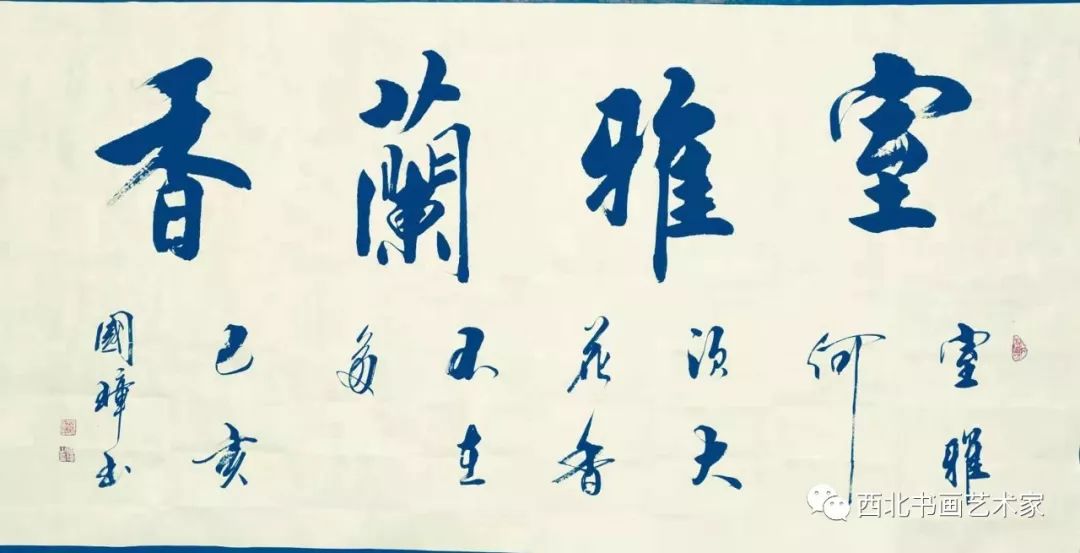 室雅蘭香
室雅
何
須大
花香
不在
多
己亥
國璋书
西北书画艺术家